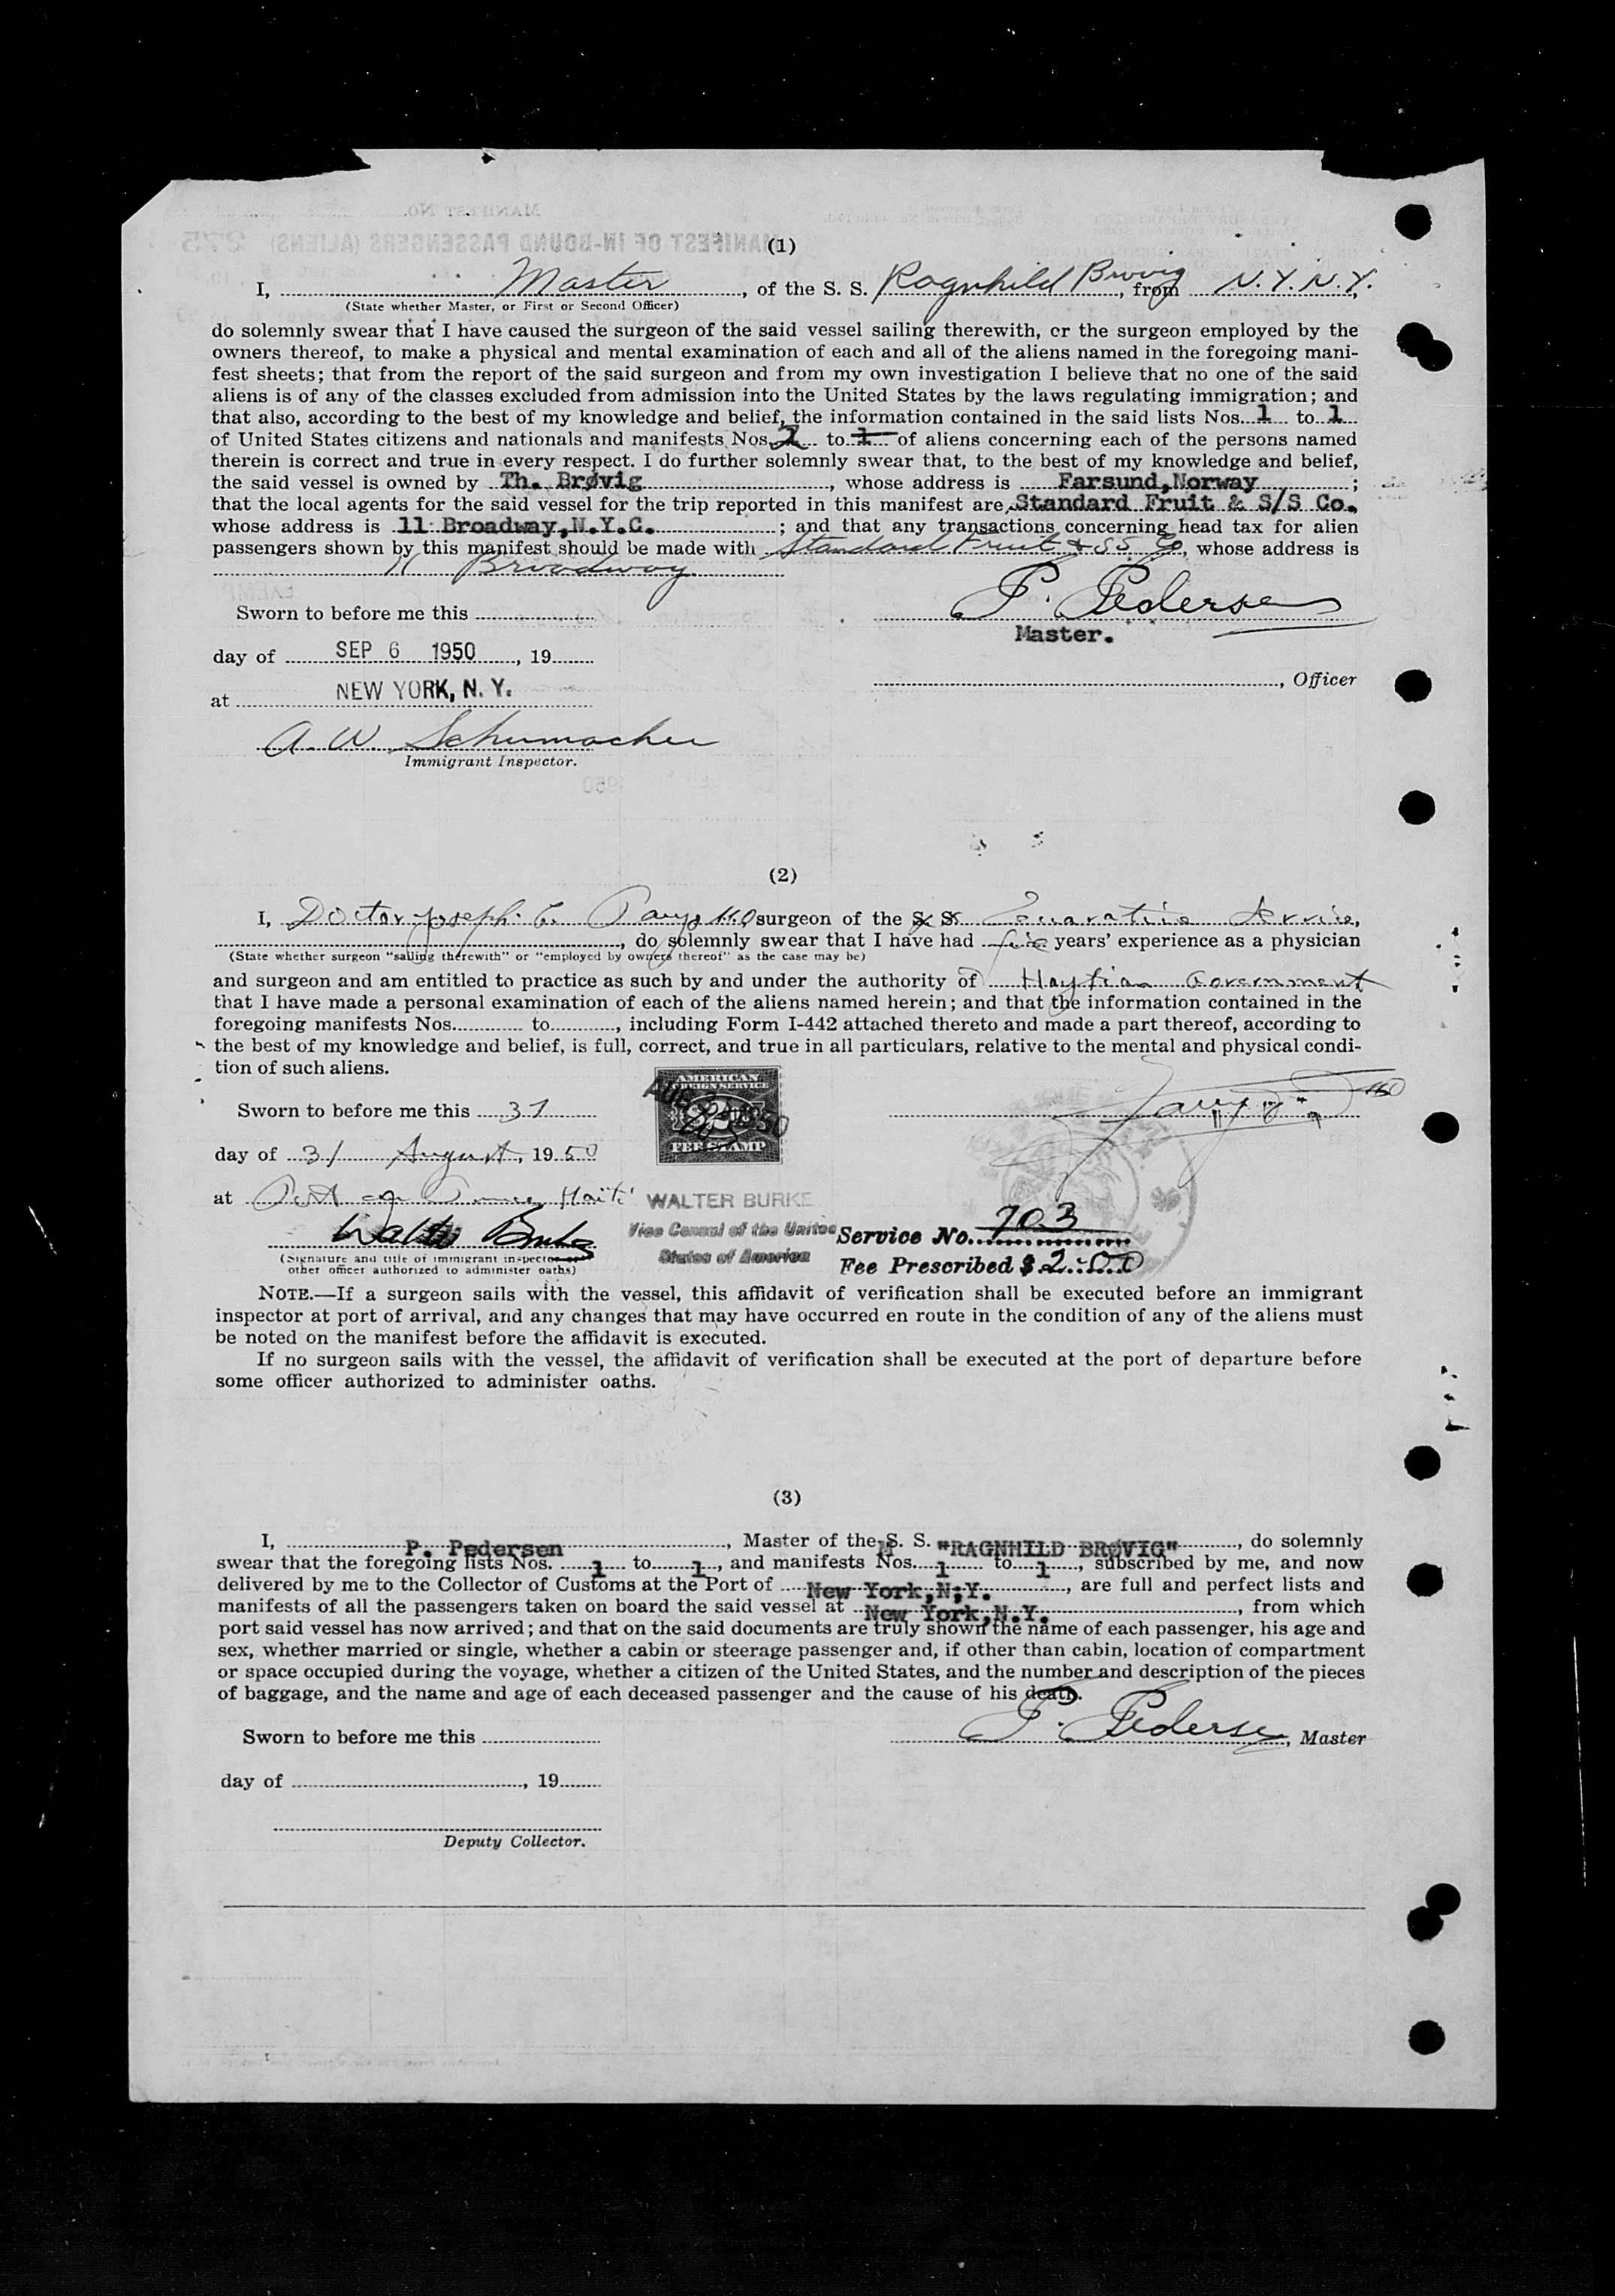 (1)
I, Master, of the S. S. Ragnhild Brovig, from N.Y. N.Y.
(State whether Master, or First or Second Officer)
do solemnly swear that I have caused the surgeon of the said vessel sailing therewith, or the surgeon employed by the
owners thereof, to make a physical and mental examination of each and all of the aliens named in the foregoing mani-
fest sheets; that from the report of the said surgeon and from my own investigation I believe that no one of the said
aliens is of any of the classes excluded from admission into the United States by the laws regulating immigration; and
that also, according to the best of my knowledge and belief, the information contained in the said lists Nos. 1 to 1
of United States citizens and nationals and manifests Nos. to 1 of aliens concerning each of the persons named
therein is correct and true in every respect. I do further solemnly swear that, to the best of my knowledge and belief,
the said vessel is owned by Th. Brøvig, whose address is Farsund,Norway;
that the local agents for the said vessel for the trip reported in this manifest are Standard Fruit & S/S Co.
whose address is 11 Broadway,N.Y.C.; and that any transactions concerning head tax for alien
passengers shown by this manifest should be made with Standard Fruit & SS Co, whose address is
11 Broadway
Sworn to before me this
P. Pedersen
Master.
day of SEP 6 1950, 19
, Officer
at NEW YORK, N. Y.
A. W. Schumacher
Immigrant Inspector.
(2)
I, Doctor Joseph surgeon of the S. S.
, do solemnly swear that I have had years' experience as a physician
(State whether surgeon "sailing therewith" or "employed by owners thereof" as the case may be)
and surgeon and am entitled to practice as such by and under the authority of Haytian Government
that I have made a personal examination of each of the aliens named herein; and that the information contained in the
foregoing manifests Nos. to, including Form I-442 attached thereto and made a part thereof, according to
the best of my knowledge and belief, is full, correct, and true in all particulars, relative to the mental and physical condi-
tion of such aliens.
AMERICAN
FOREIGN SERVICE
$2
FEE STAMP
Sworn to before me this 31
day of 31 August, 1950
at Port au Prince, Haiti
WALTER BURKE
Vice Consul of the United
States of America
Service No. 703
Fee Prescribed $2.00
Walter Burke
(Signature and title of immigrant inspector or
other officer authorized to administer oaths)
NOTE.—If a surgeon sails with the vessel, this affidavit of verification shall be executed before an immigrant
inspector at port of arrival, and any changes that may have occurred en route in the condition of any of the aliens must
be noted on the manifest before the affidavit is executed.
If no surgeon sails with the vessel, the affidavit of verification shall be executed at the port of departure before
some officer authorized to administer oaths.
(3)
I, P. Pedersen, Master of the M S. S. "RAGNHILD BRØVIG", do solemnly
swear that the foregoing lists Nos. 1 to 1, and manifests Nos. 1 to 1, subscribed by me, and now
delivered by me to the Collector of Customs at the Port of New York,N;Y., are full and perfect lists and
manifests of all the passengers taken on board the said vessel at New York,N.Y., from which
port said vessel has now arrived; and that on the said documents are truly shown the name of each passenger, his age and
sex, whether married or single, whether a cabin or steerage passenger and, if other than cabin, location of compartment
or space occupied during the voyage, whether a citizen of the United States, and the number and description of the pieces
of baggage, and the name and age of each deceased passenger and the cause of his death.
Sworn to before me this
P. Pedersen, Master
day of, 19
Deputy Collector.